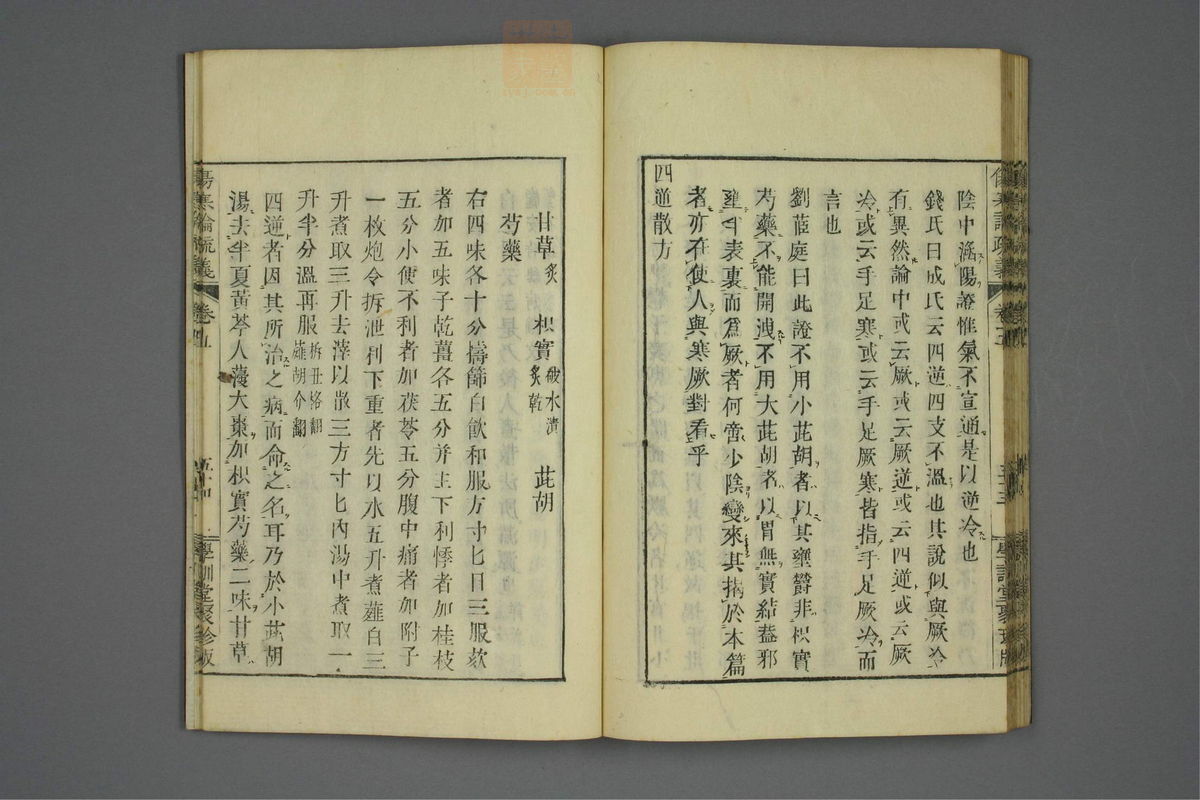 陰中滀陽證惟氣不宣通是以逆冷也
錢氏曰成氏云四逆四支不溫也其說似與厥冷
有異然論中或云厥或云厥逆或云四逆或云厥
冷或云手足寒或云手足厥寒皆指手足厥冷而
言也
劉茝庭曰此證不用小茈胡者以其壅鬱非枳實
芍藥不能開洩不用大茈胡者以胃無實結葢邪
壅半表裏而爲厥者何啻少陰變來其揭於本篇
者亦在使人與寒厥對看乎
四逆散方
甘草炙 枳實破水漬炙乾 茈胡
芍藥
右四味各十分擣篩白飮和服方寸匕日三服欬
者加五味子乾薑各五分并主下利悸者加桂枝
五分小便不利者加茯苓五分腹中痛者加附子
一枚炮令拆泄利下重者先以水五升煮薤白三
升煮取三升去滓以散三方寸匕內湯中煮取一
升半分溫再服拆丑格翻薤胡介翻
四逆者因其所治之病而命之名耳乃於小茈胡
湯去半夏黃芩人薓大棗加枳實芍藥二味甘草
傷寒論疏義 卷五 學訓堂聚珍版